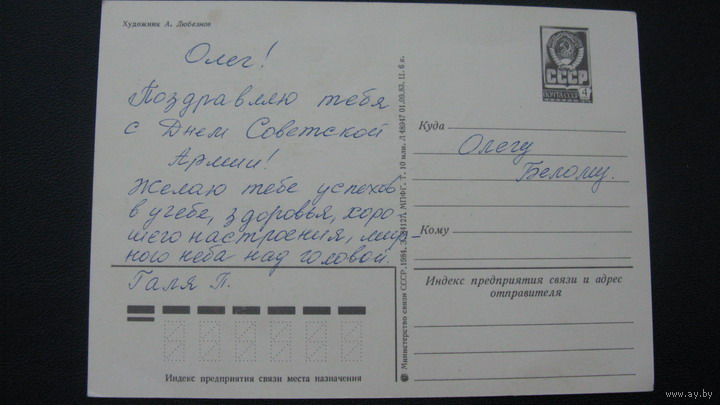 Художник А. Любезнов
Олег!
Поздравляю тебя
с Днем Советской
Армии!
Желаю тебе успехов
в учебе, здоровья, хоро
шего настроения, мир-
ного неба над головой.
Галя П.
Индекс предприятия связи места назначения
Министерство связи СССР. 1984. З. 8412Л. МПФГ. Т. 10 млн. Л 48947 01.09.83. Ц. 6 к.
СССР
ПОЧТА СССР
4
Куда
Олегу
Белому.
Кому
Индекс предприятия связи и адрес
отправителя
www.ay.by